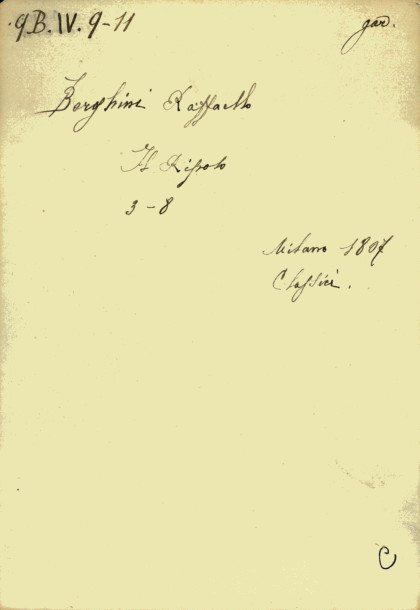 9B.IV.9-11
gar.
Borghini Raffaello
Il Riposo
3-8
Milano 1807
Classici.
C